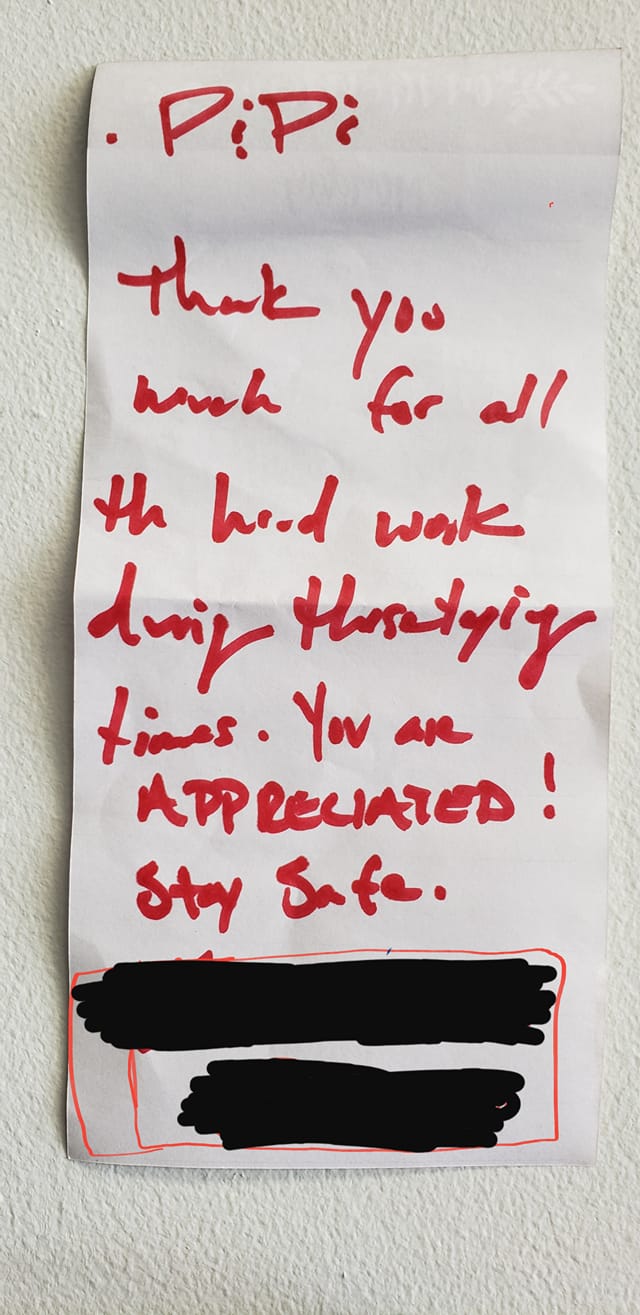 . PiPi
Thank you
much for all
th hard work
during these trying
times. You are
APPRECIATED!
Stay Safe.